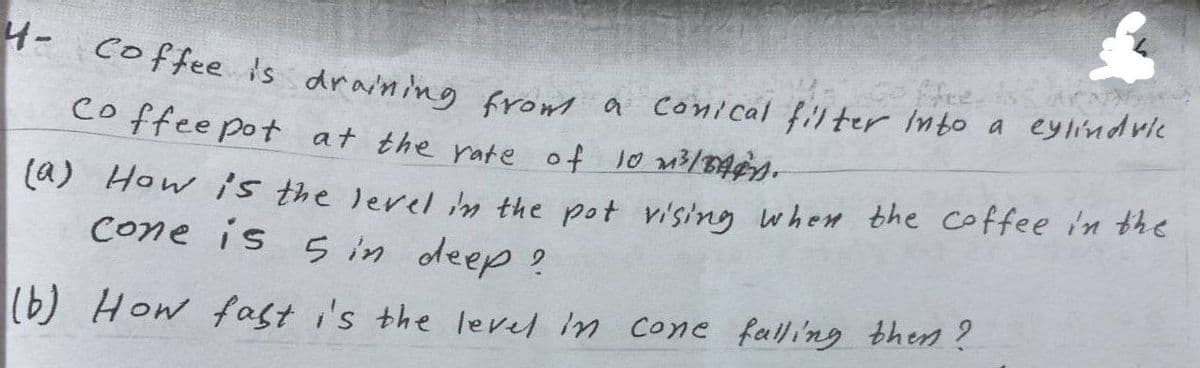 4- Coffee is draining from a conical filter into a cylindric
coffeepot at the rate of 10
(a) How is the level in the pot rising when the coffee in the
cone is 5 in deep?
(b) How fast is the level in cone falling then?